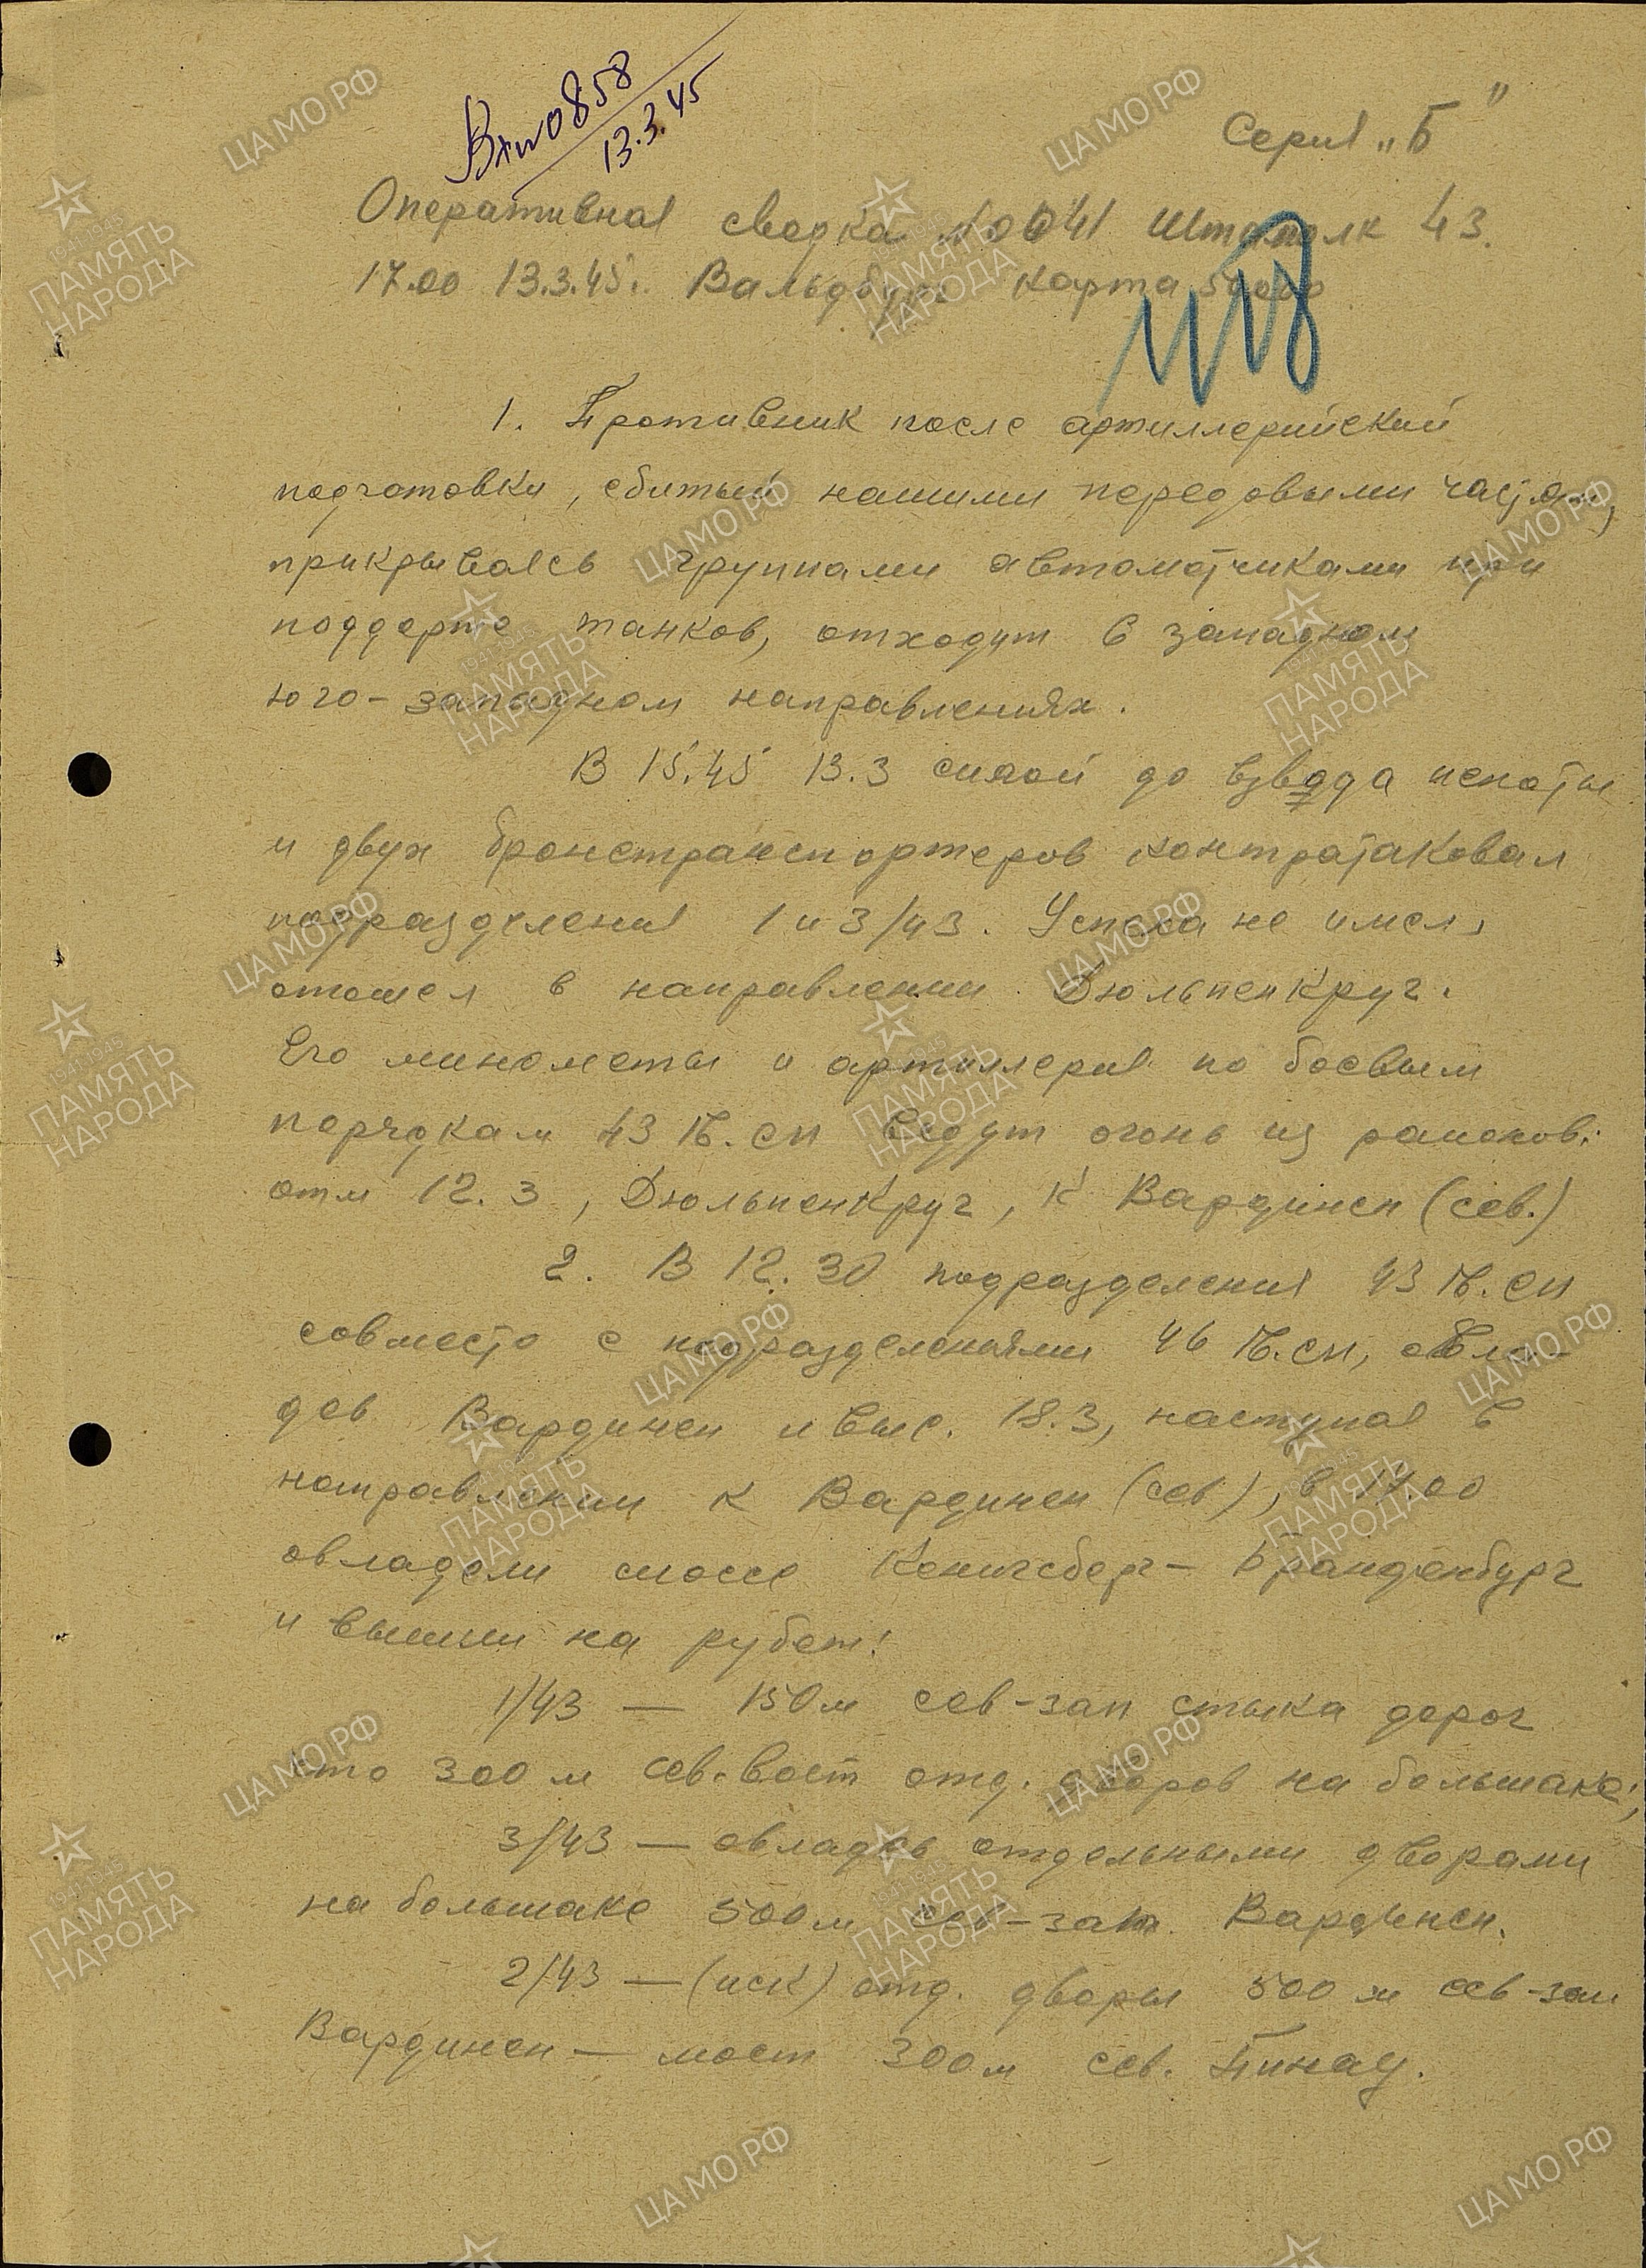 Вх №0858
13.3.45
Серия „Б"
Оперативная сводка №0041 Штаполк 43.
17.00 13.3.45. Вальдбург карта 50000
1. Противник после артиллерийский
подготовки, сбитый нашими передовыми частями,
прикрываясь группами автоматчиками при
поддержке танков, отходит в западном
юго-западном направлениях.
В 15.45 13.3 силой до взвода пехоты
и двух бронетранспортеров контратаковал
подразделения 1 и 3/43. Успеха не имел,
отошел в направлении Дюльпенкруг.
Его минометы и артиллерия по боевым
порядкам 43 гв.сп ведут огонь из районов:
отм 12.3, Дюльпенкруг, К Вардинен (сев.)
2. В 12.30 подразделения 43 гв.сп
совместо с подразделениями 46 гв.сп, овла-
дев Вардинен и выс. 18.3, наступая в
направлении К Вардинен (сев), в 17.00
овладели шоссе Кенигсберг - Бранденбург
и вышли на рубеж:
1/43 — 150м сев-зап стыка дорог
что 300 м сев.вост отд. дворов на большаке;
3/43 — овладев отдельными дворами
на большаке 500м сев-зап. Вардинен.
2/43 — (иск) отд. дворы 500 м сев-зап
Вардинен — мост 300м сев. Пинау.